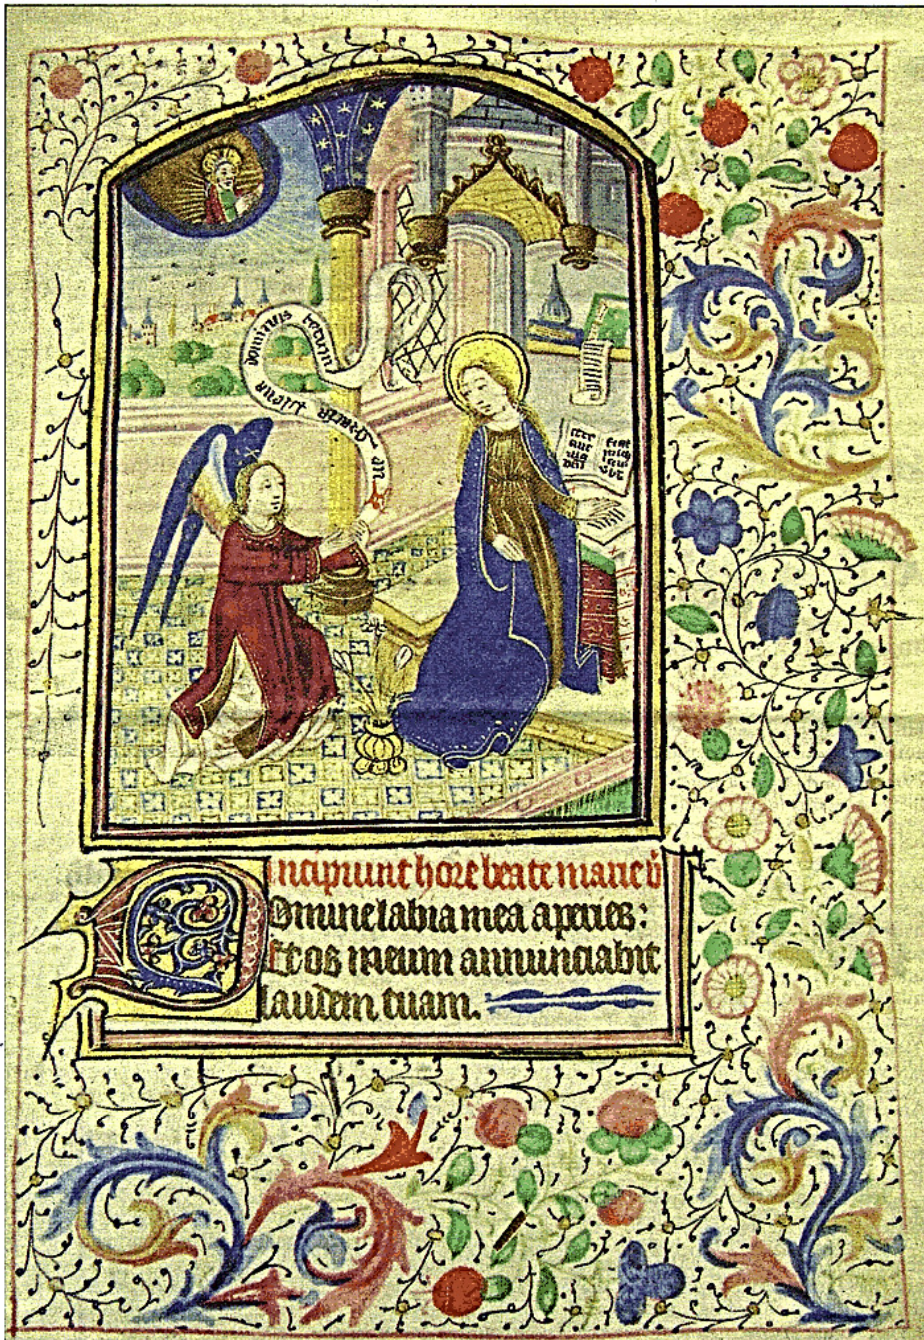 gracia plena dominus tecum
Incipiunt hore beate marie v
Domine labia mea aperies:
Et os meum annunciabit
laudem tuam.